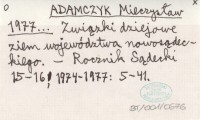 ADAMCZYK Mieczysław
1977... Związki dziejowe
ziem województwa nowosądec-
kiego. — Rocznik Sądecki
15-16, 1974-1977: 5-41.